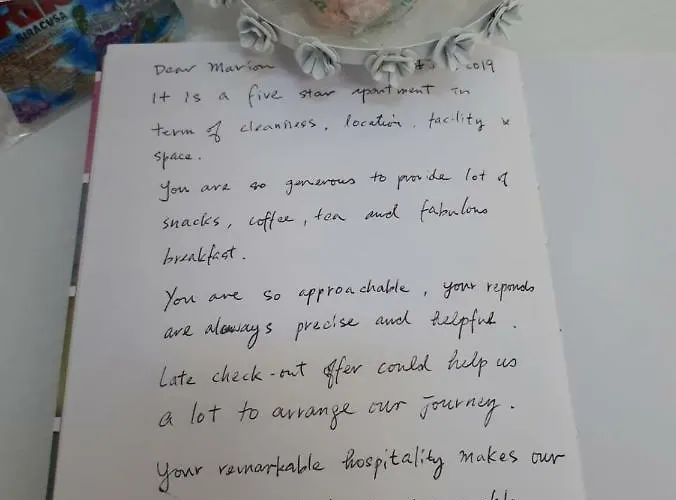 SIRACUSA
Dear Marion 2019
It is a five star apartment in
term of cleanness, location, facility &
space.
You are so generous to provide lot of
snacks, coffee, tea and fabulous
breakfast.
You are so approachable, your reponds
are always precise and helpful.
Late check-out offer could help us
a lot to arrange our journey.
Your remarkable hospitality makes our